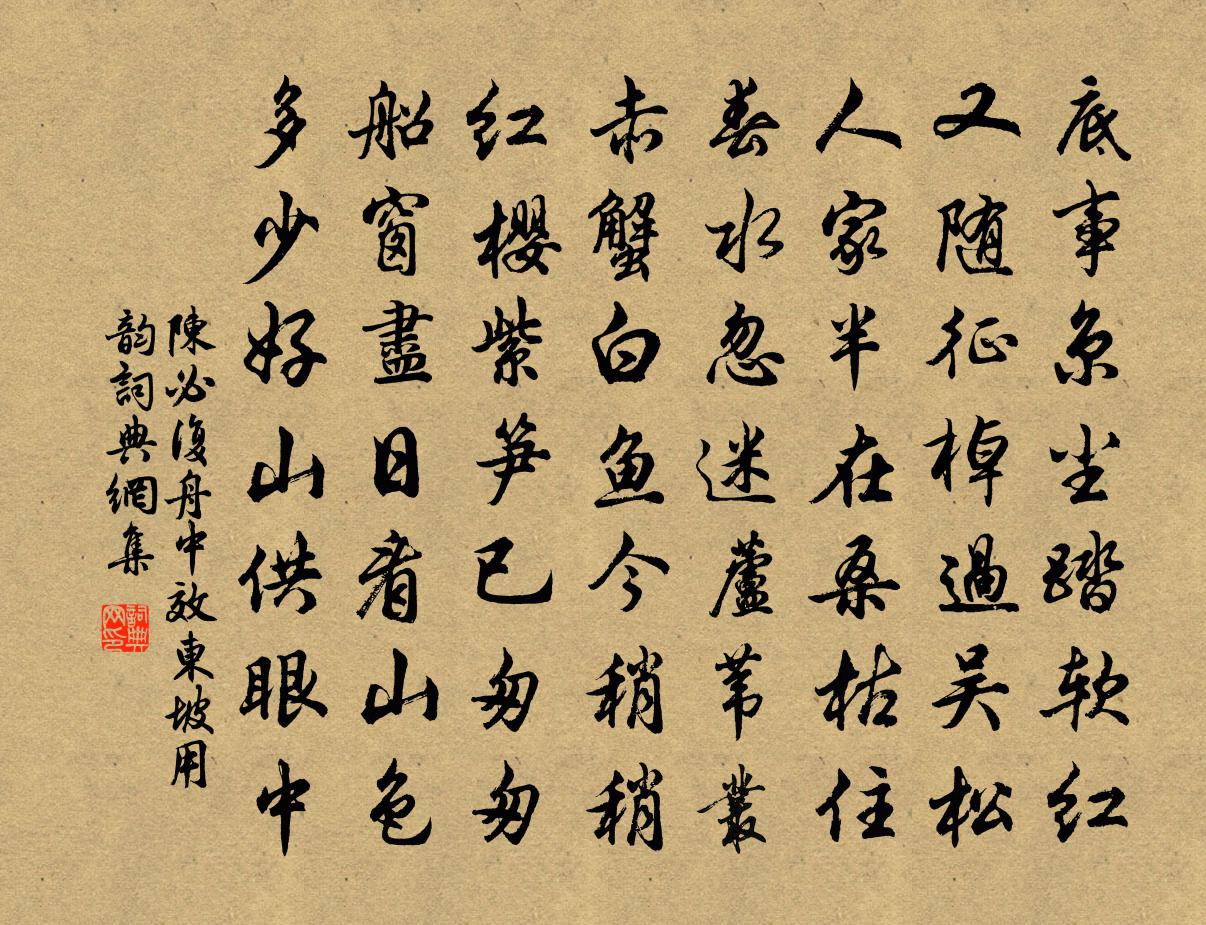 底事京尘踏软红
又随征棹過吴松
人家半在桑枯住
春水忽迷蘆苇叢
赤蟹白鱼今稍稍
红櫻紫笋已匆匆
船窗盡日看山色
多少好山供眼中
陳必復舟中效東坡用
韵詞典網集
詞典
网印